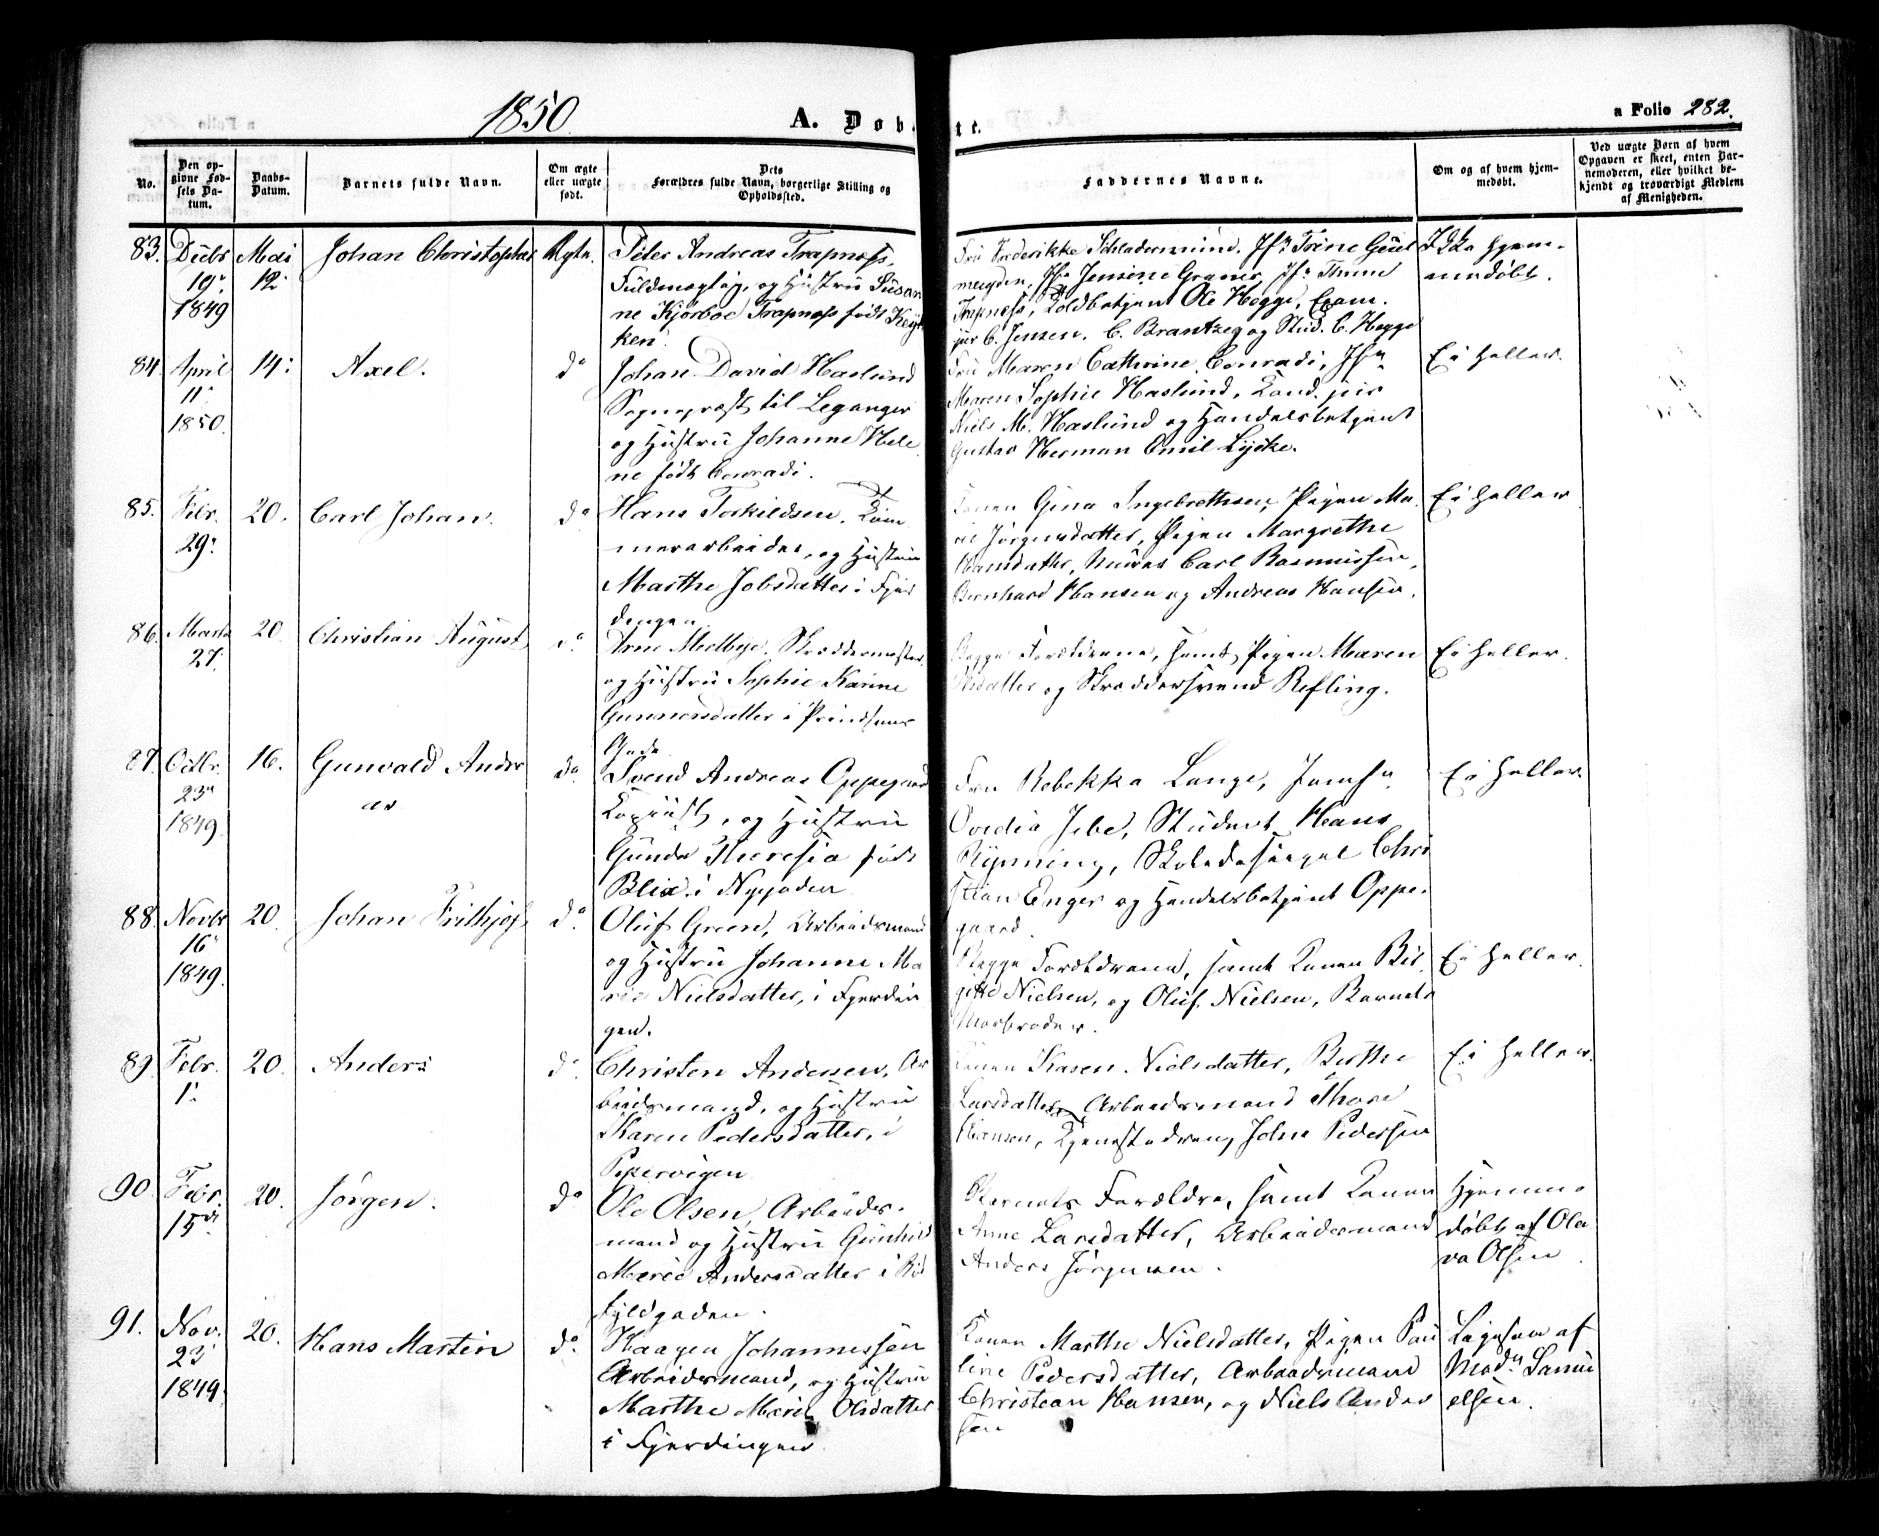 1850.
A. Døbte.
a Folio 282.
No.
Den opgivne Fødsels Datum.
Daabs-Datum.
Barnets fulde Navn.
Om ægte eller uægte født.
Dets Forældres fulde Navn, borgerlige Stilling og Opholdssted.
Faddernes Navne.
Om og af hvem hjemmedøbt.
Ved uægte Børn af hvem Opgaven er skeet, enten Barnemoderen, eller hvilket bekjendt og troværdigt Medlem af Menigheden.
83. Decbr 19de 1849
Mai 12.
Johan Christopher
Ægte.
Peter Andreas Trapness,
Fuldmægtig, og Hustru Susan
ne Kjørboe Trapness født
ken.
Fru Frederikke Jfr Trine
Jfr Jensine
Trapness, Toldbetjent Ole Hegge, Exam.
jur C. Jensen, C. Brantzeg og Stud. C. Hegge
Ikke hjem-
medøbt.
84. April 11. 1850.
14.
Axel.
do
Johan David Haslund
Sognepræst til Leganger
og Hustru Johanne Hele
ne født Conradi.
Fru Maren Cathrine Conradi, Jfr
Maren Sophie Haslund, Cand. jur
Niels M. Haslund og Handelsbetjent
Gustav Herman Emil Lycke.
Ei heller.
85. Febr. 29.
20.
Carl Johan.
do
Hans Torkildsen, Tøm
merarbeider, og Hustru
Marthe Jobsdatter i Fjer
dengen.
Konen Gina Ingebrethsen, Pigen Ma
rie Jørgensdatter, Pigen Margrethe
Hansdatter, Murer Carl Rasmussen,
Bernhard Hansen og Andreas Hansen.
Ei heller
86. Marts 27.
20.
Christian August
do
Arne Melbye, Skræddermester
og Hustru Sophie Karine
Gunnersdatter i Prindsens
Gade.
Begge Forældrene, samt Pigen Maren
Olsdatter og Skræddersvend Refling.
Ei heller.
87. Octbr. 23. 1849.
16.
Gunvald Andre
as
do
Svend Andreas Oppegaard
Kopiist, og Hustru
Gunda Theresia født
Blix i Nygaden
Fru Rebekka Lange, Jomfr.
Ovedia Jebe, Student Hans
Rynning, Skoledisipel Chri
stian Enger og Handelsbetjent Oppe-
gaard.
Ei heller.
88. Novbr 16. 1849.
20.
Johan Frithjof
do.
Oluf Green, Arbeidsmand
og Hustru Johanne Ma
rie Nielsdatter, i Fjerdin
gen.
Begge Forældrene, samt Konen Bir
gitte Nielsen, og Oluf Nielsen, Barnets
Morbroder.
Ei heller.
89. Febr. 1.
20.
Anders
do.
Christen Andersen, Ar
beidsmand, og Hustru
Karen Pedersdatter, i
Pipervigen
Konen Karen Nielsdatter, Berthe
Larsdatter, Arbeidsmand Thore
Hansen, Tjenestedreng John Pedersen
Ei heller.
90. Febr. 15de
20.
Jørgen.
do
Ole Olsen, Arbeids-
mand og Hustru Gunhild
Marie Andersdatter i
fyldgaden.
Barnets Forældre, samt Konen
Anne Larsdatter, Arbeidsmand
Anders Jørgensen.
Hjemme-
døbt af Ola
va Olsen.
91. Nov. 23. 1849.
20.
Hans Martin
do.
Haagen Johannessen
Arbeidsmand, og Hustru
Marthe Marie Olsdatter
i Fjerdingen.
Konen Marthe Nielsdatter, Pigen Pau
line Pedersdatter, Arbeidsmand
Christian Hansen, og Niels Ander
sen
Ligesaa af
Madm Samu
elsen.